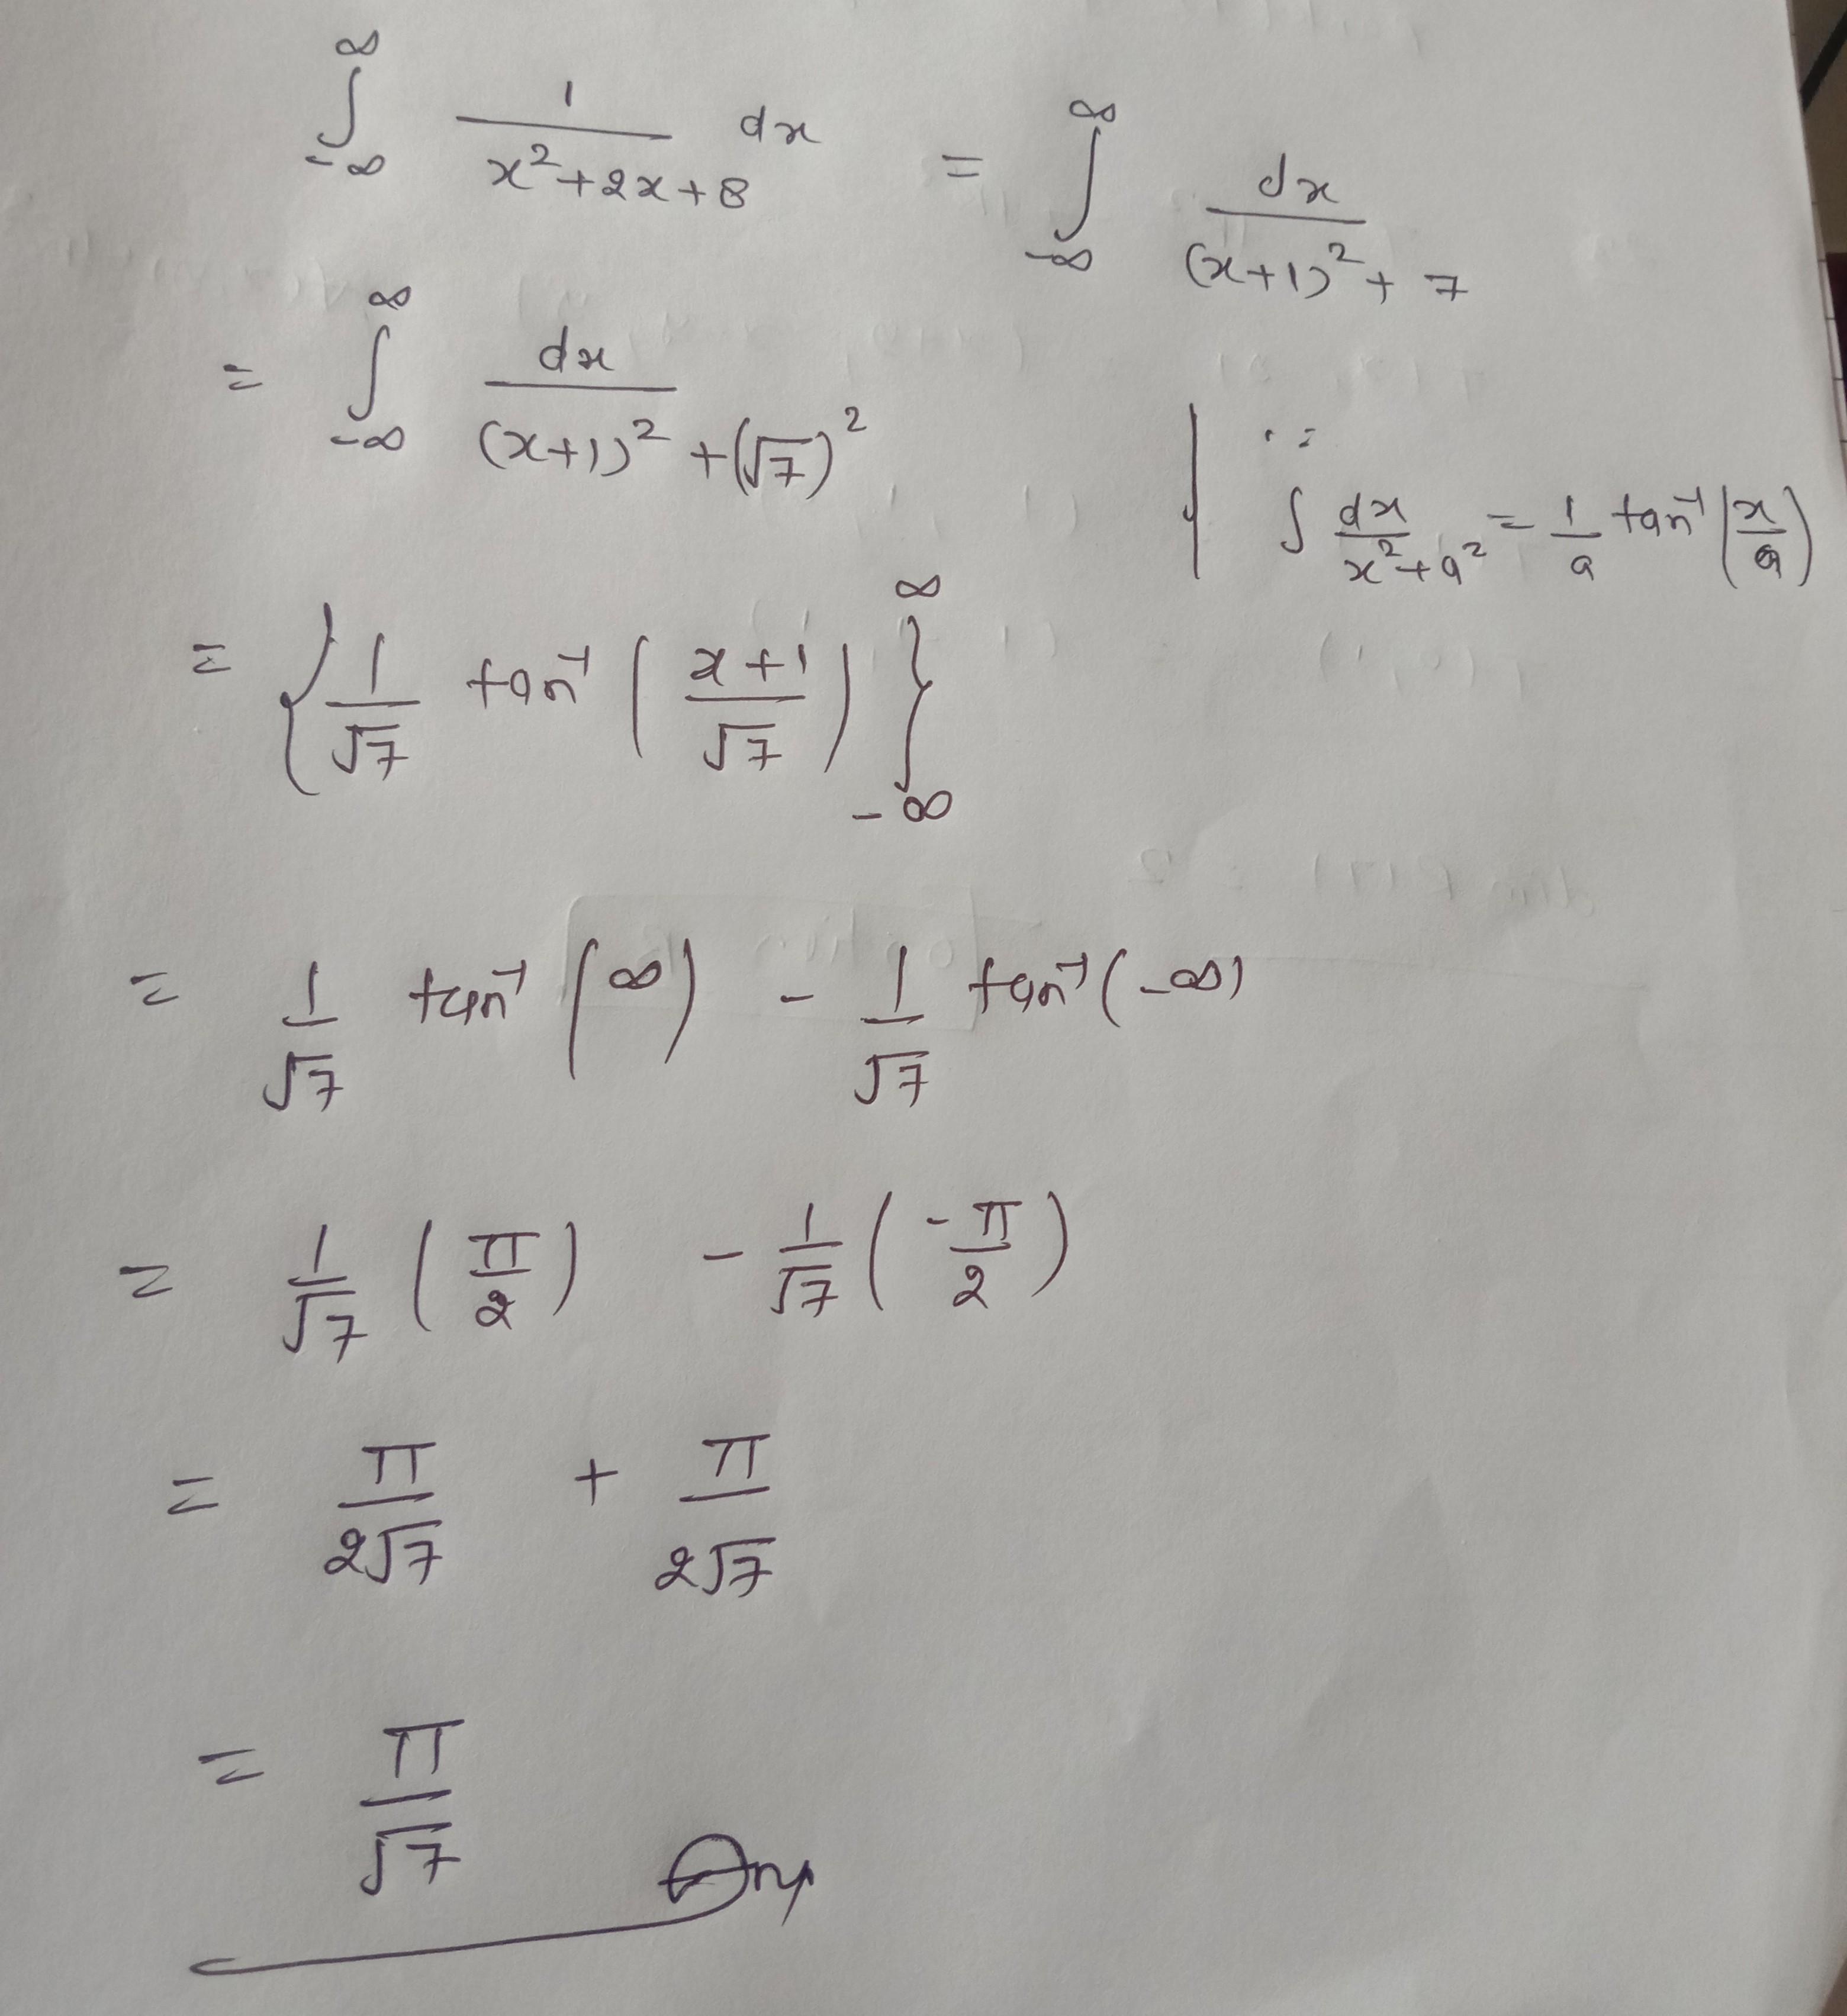 ∫_{-∞}^{∞} 1/(x²+2x+8) dx = ∫_{-∞}^{∞} dx/((x+1)²+7)
= ∫_{-∞}^{∞} dx/((x+1)²+(√7)²)
∵
∫ dx/(x²+a²) = 1/a tan⁻¹(x/a)
= {1/√7 tan⁻¹((x+1)/√7)}_{-∞}^{∞}
= 1/√7 tan⁻¹(∞) - 1/√7 tan⁻¹(-∞)
= 1/√7 (π/2) - 1/√7 (-π/2)
= π/(2√7) + π/(2√7)
= π/√7
Ans